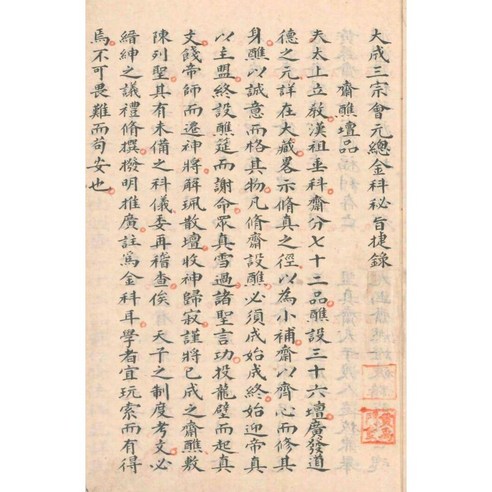 大成三宗會元總金科秘旨捷錄
齋醮壇品
夫太上立教漢祖垂科齋分七十二品醮設三十六壇廣發道
德之元詳在大藏畧示脩真之徑以為小補齋以齊心而修其
身醮以誠意而恪其物凡脩齋設醮必須成始成終始迎帝真
以主盟終設醮筵而謝命眾真雪過諸聖言功投龍璧而起真
文餞帝師而遷神將解珮散壇收神歸寂謹將已成之齋醮敷
陳列聖其有未備之科儀委再稽查俟天子之制度考文必
縉紳之議禮脩撰撥明推廣註為金科耳學者宜玩索而有得
焉不可畏難而苟安也